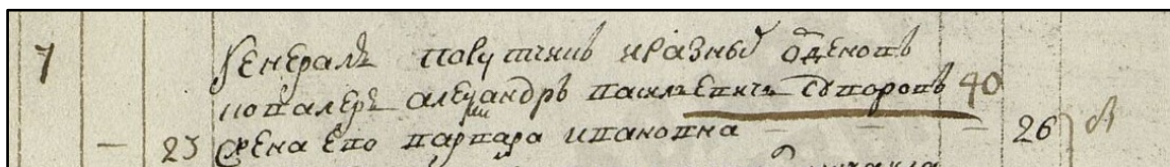 7 Генералъ порутчикъ и разныхъ орденовъ
ковалеръ александръ василъевичъ суворовъ 40
— 23 жена ево варвара ивановна — — — 26